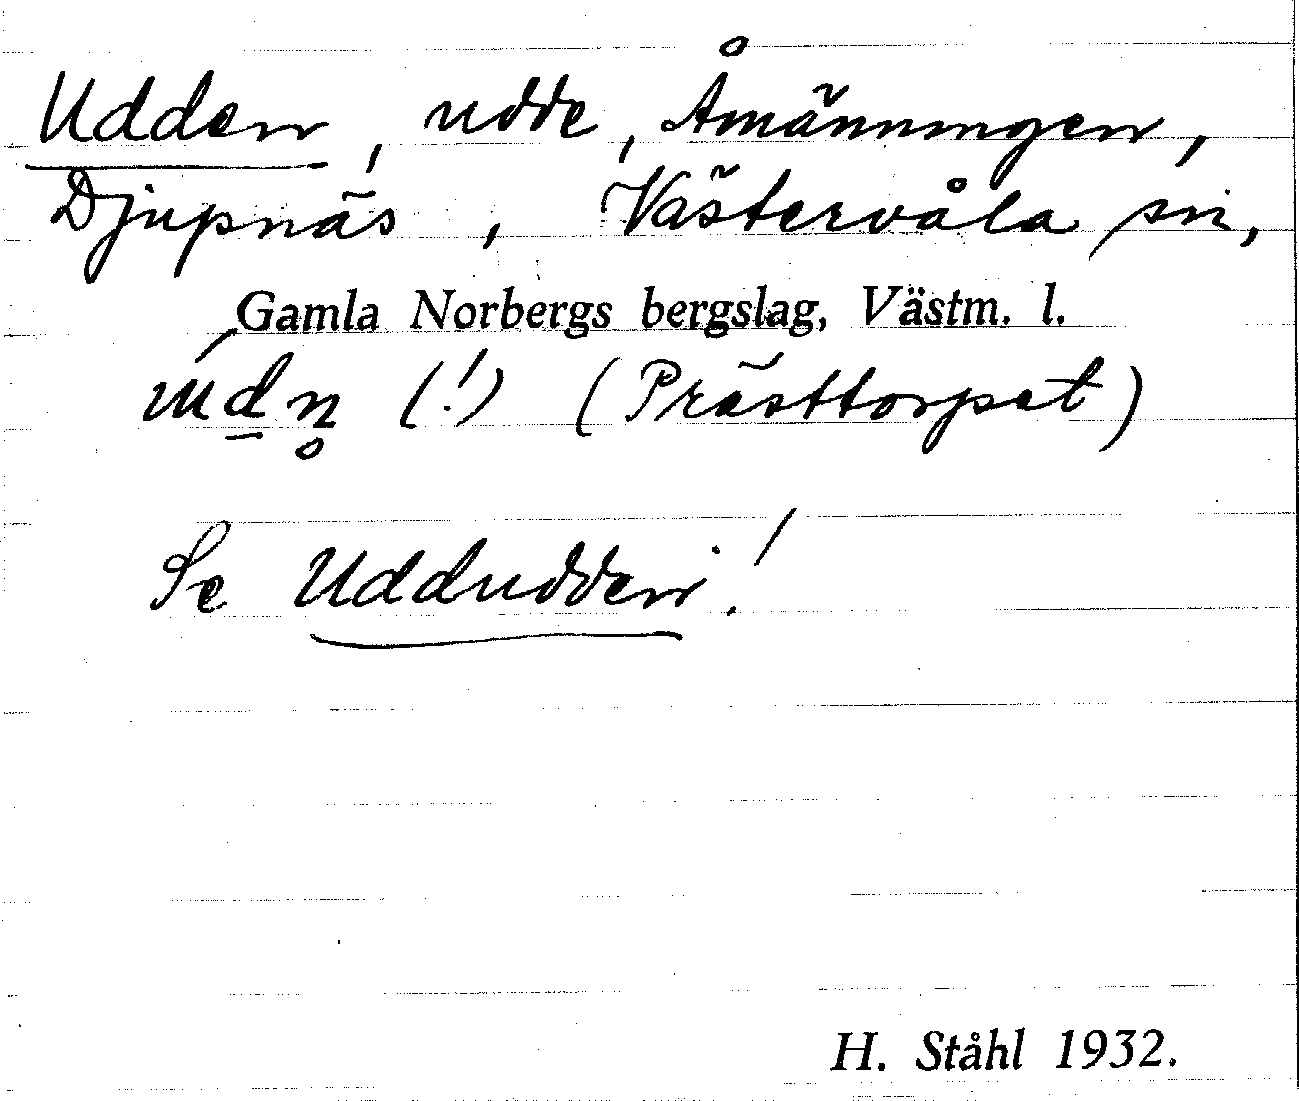 Udden, udde, Åmänningen,
Djupnäs, Västervåla sn,
Gamla Norbergs bergslag, Västm. l.
(!) (Prästtorpet)
Se Uddudden!
H. Ståhl 1932.